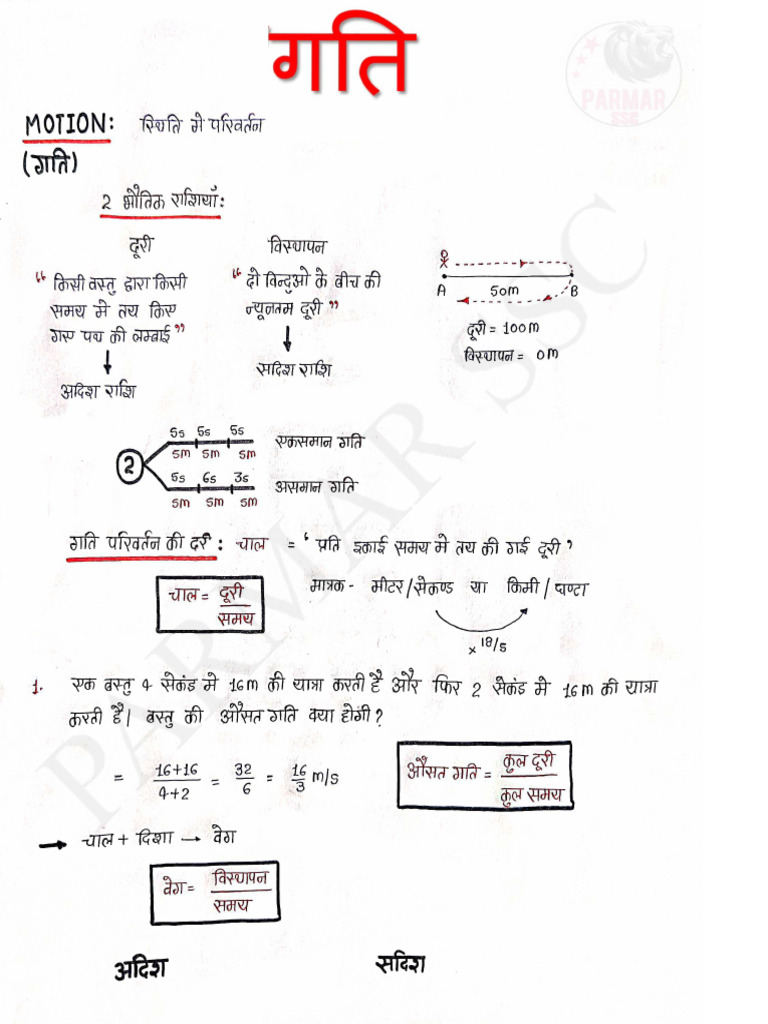 गति
PARMAR
SSC
MOTION: स्थिति मे परिवर्तन
(गति)
2 भौतिक राशियाँ:
दूरी
“ किसी वस्तु द्वारा किसी
समय मे तय किए
गए पथ की लम्बाई ”
अदिश राशि
विस्थापन
“ दो बिन्दुओ के बीच की
न्यूनतम दूरी ”
सदिश राशि
A 50m B
दूरी = 100m
विस्थापन = 0m
2
5s 5s 5s
5m 5m 5m
एकसमान गति
5s 6s 3s
5m 5m 5m
असमान गति
गति परिवर्तन की दर : चाल = ‘ प्रति इकाई समय मे तय की गई दूरी ’
चाल = दूरी / समय
मात्रक - मीटर/सेकण्ड या किमी/घण्टा
x 18/5
1. एक वस्तु 4 सेकंड मे 16m की यात्रा करती है और फिर 2 सेकंड मे 16m की यात्रा
करती है। वस्तु की औसत गति क्या होगी?
= 16+16 / 4+2 = 32 / 6 = 16 / 3 m/s
औसत गति = कुल दूरी / कुल समय
→ चाल + दिशा → वेग
वेग = विस्थापन / समय
अदिश सदिश
PARMAR SSC